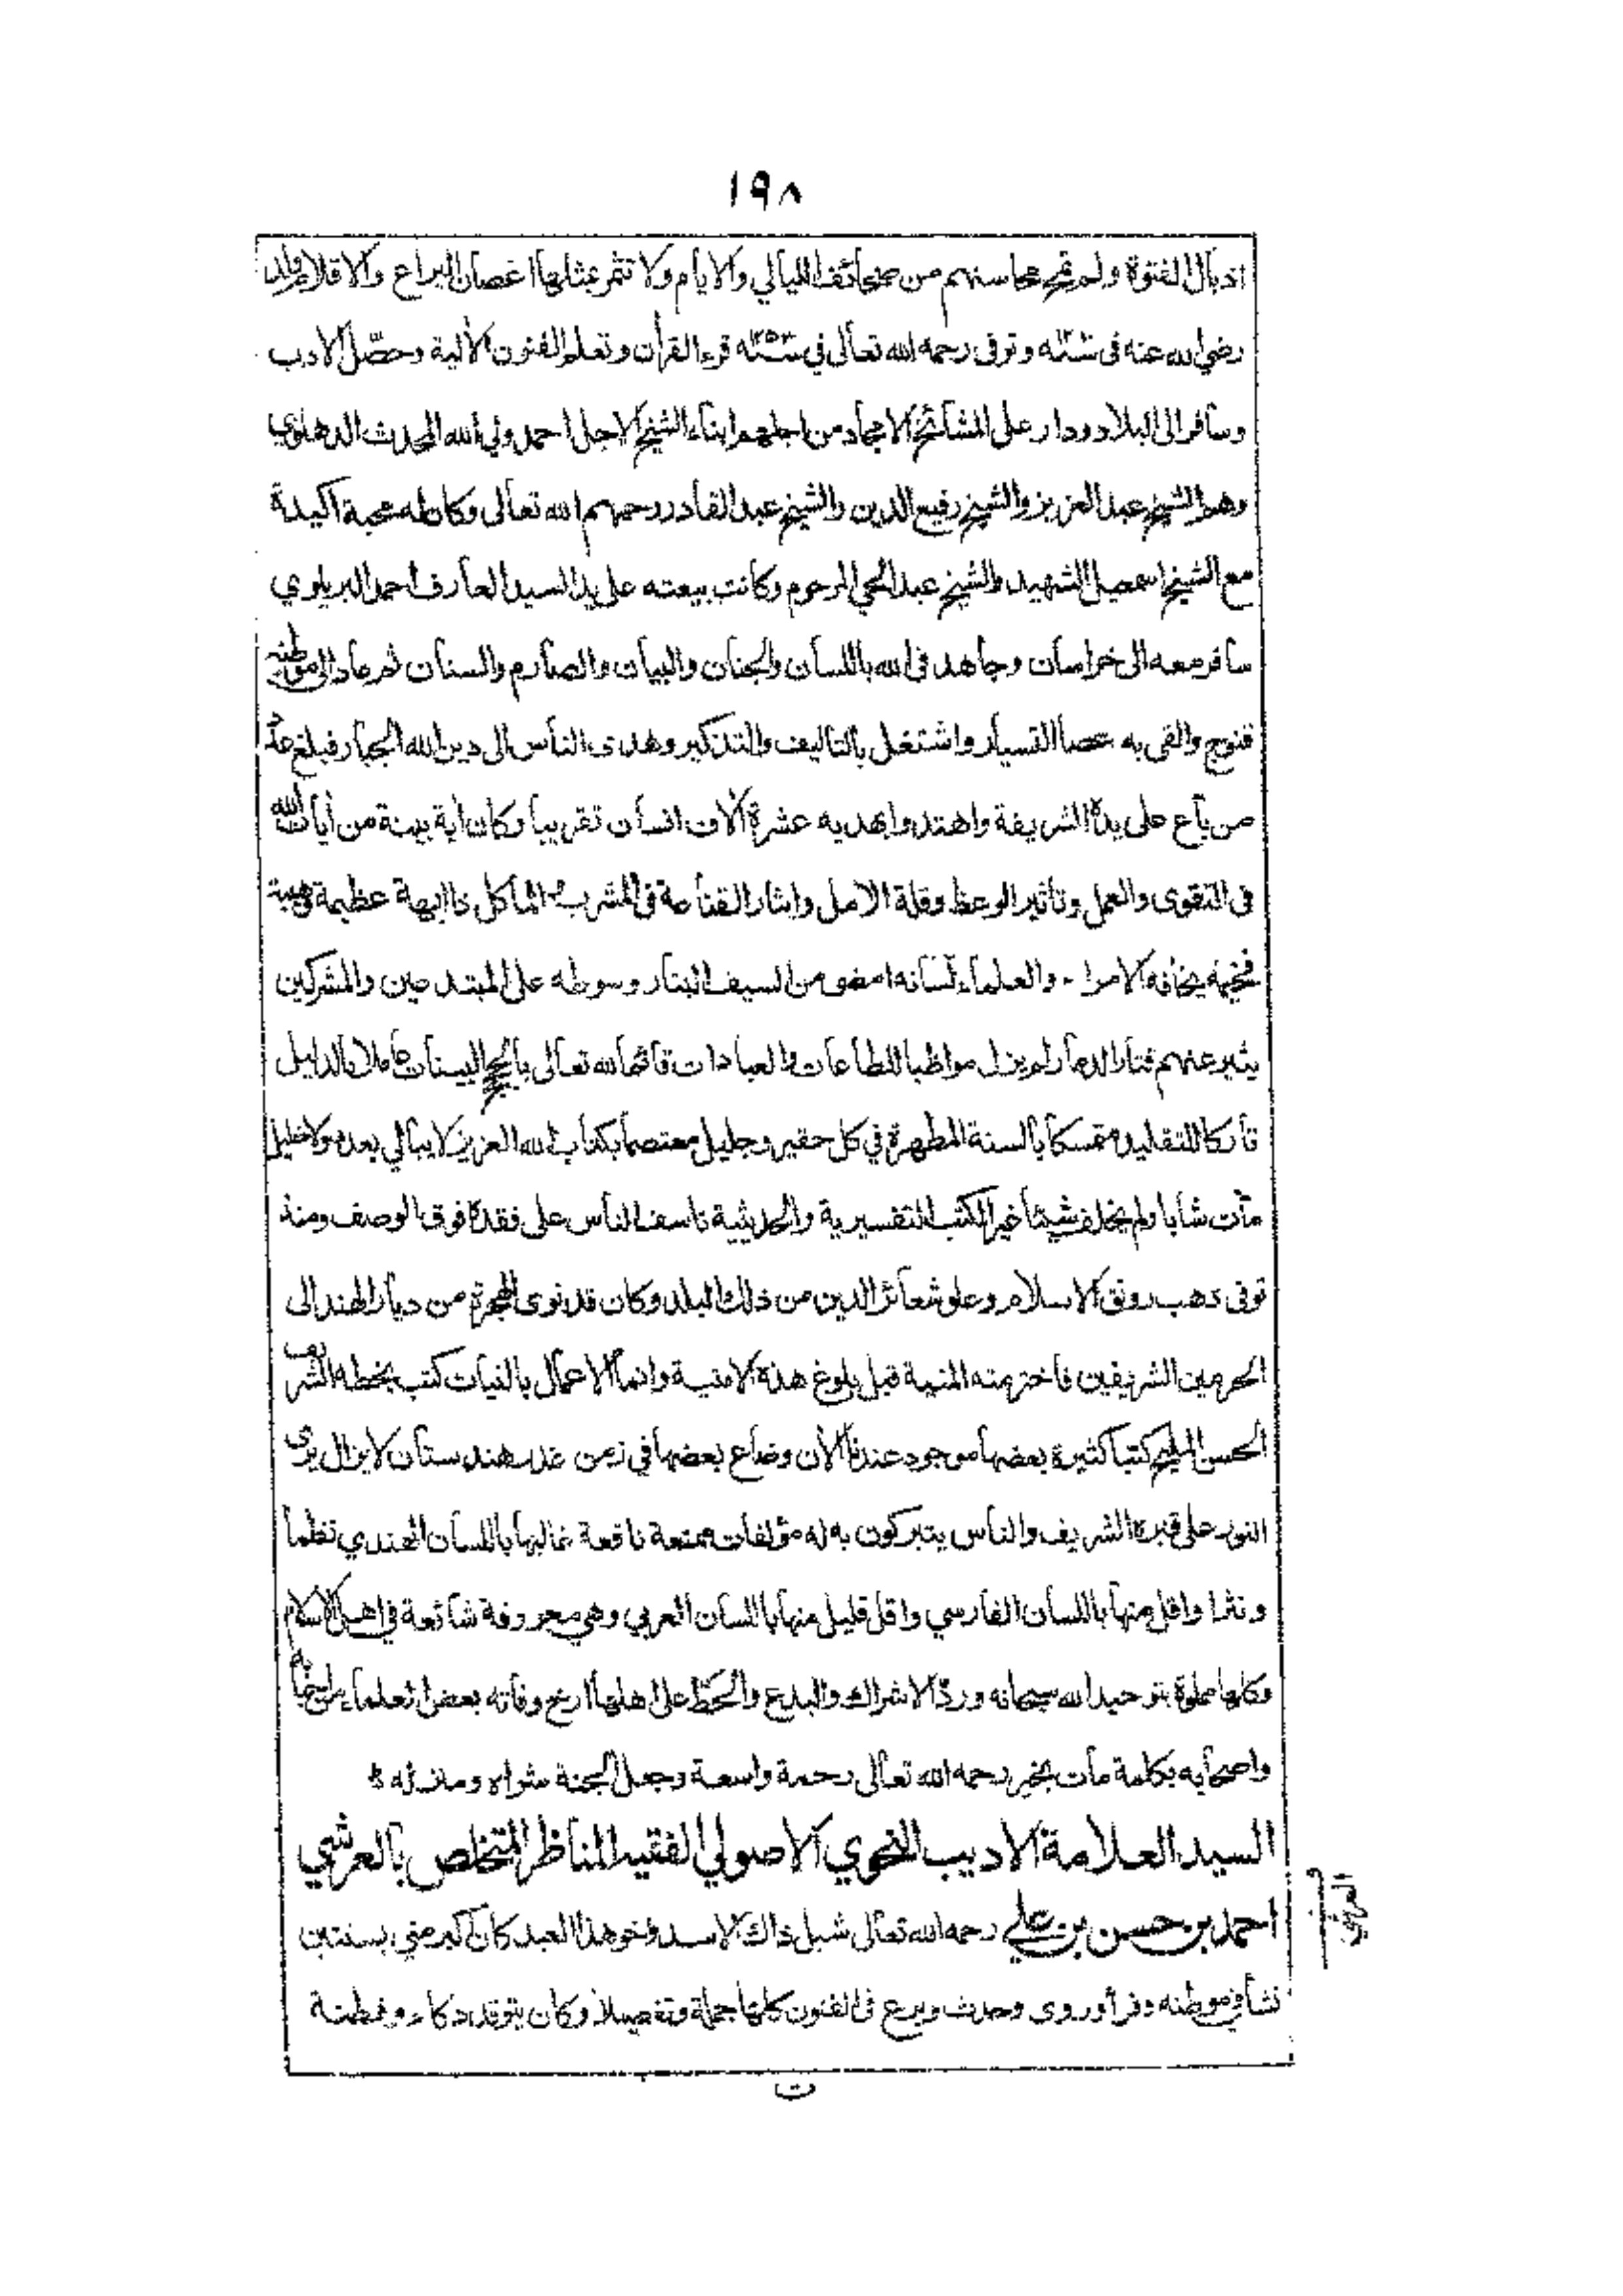 ١٩٨
اذيال الفتوة ولم تمح محاسنهم من صحائف الليالي والايام ولا تثمر بمثلها اغصان اليراع والاقلام ولد
رضي الله عنه فى سنة وتوفى رحمه الله تعالى في سنة ١٢٥٣ه قرء القرأن وتعلم الفنون الألية وحصّل الادب
وسافر الى البلاد ودار على المشائخ الامجاد من اجلهم ابناء الشيخ الاجل احمد ولي الله المحدث الدهلوي
وهم الشيخ عبد العزيز والشيخ رفيع الدين والشيخ عبد القادر رحمهم الله تعالى وكان له صحبة اكيدة
مع الشيخ اسمعيل الشهيد والشيخ عبد الحي المرحوم وكانت بيعته على يد السيد العارف احمد البريلوي
سافر معه الى خراسان وجاهد فى الله باللسان والجنان والبيان والصارم والسنان ثم عاد الى موطنه
قنوج والقى به عصا التسيار واشتغل بالتاليف والتذكير وهدى الناس الى دين الله الجبار فبلغ عدد
من باع على يده الشريفة واهتدوا بهديه عشرة ألاف انسان تقريبا وكان أية بينة من أيات الله
فى التقوى والعمل وتاثير الوعظ وقلة الامل وايثار القناعة فى المشرب والمأكل ذا ابهة عظيمة وهيبة
فخيمة يخافه الامراء والعلماء لسانه امضى من السيف البتار وسوطه على المبتدعين والمشركين
يثير عنهم قتار الدمار لم يزل مواظبا للطاعات والعبادات قائما لله تعالى بالحجج البينات عاملا بالدليل
تاركا للتقليد متمسكا بالسنة المطهرة في كل حقير وجليل معتصما بكتاب الله العزيز لا يبالي بعدو ولا خليل
مات شابا ولم يخلف شيئا غير الكتب التفسيرية والحديثية تاسف الناس على فقده فوق الوصف ومنذ
توفى ذهب رونق الاسلام وعلو شعائر الدين من ذلك البلد وكان قد نوى الهجرة من ديار الهند الى
الحرمين الشريفين فاخترمته المنية قبل بلوغ هذه الامنية وانما الاعمال بالنيات كتب بخطه الشريف
الحسن المليح كتبا كثيرة بعضها موجود عندنا الأن وضاع بعضها في زمن غدر هندستان لا يزال يرى
النور على قبره الشريف والناس يتبركون به له مؤلفات ممتعة نافعة غالبها باللسان الهندي نظما
ونثرا واقل منها باللسان الفارسي واقل قليل منها باللسان العربي وهي معروفة شائعة في اهل الاسلام
وكلها مملوة بتوحيد الله سبحانه وردّ الاشراك والبدع والحط على اهلها ارخ وفاته بعض العلماء
واصحابه بكلمة مات بخير رحمه الله تعالى رحمة واسعة وجعل الجنة مثواه ومنزله
السيد العلامة الاديب النحوي الاصولي الفقيه المناظر المتخلص بالعرشي
احمد بن حسن بن علي رحمه الله تعالى شبل ذاك الاسد واخو هذا العبد كان اكبر مني بسنتين
نشأ في موطنه وقرأ وروى وحدث وبرع فى الفنون كلها جملة وتفصيلا وكان يتوقد ذكاء وفطنة